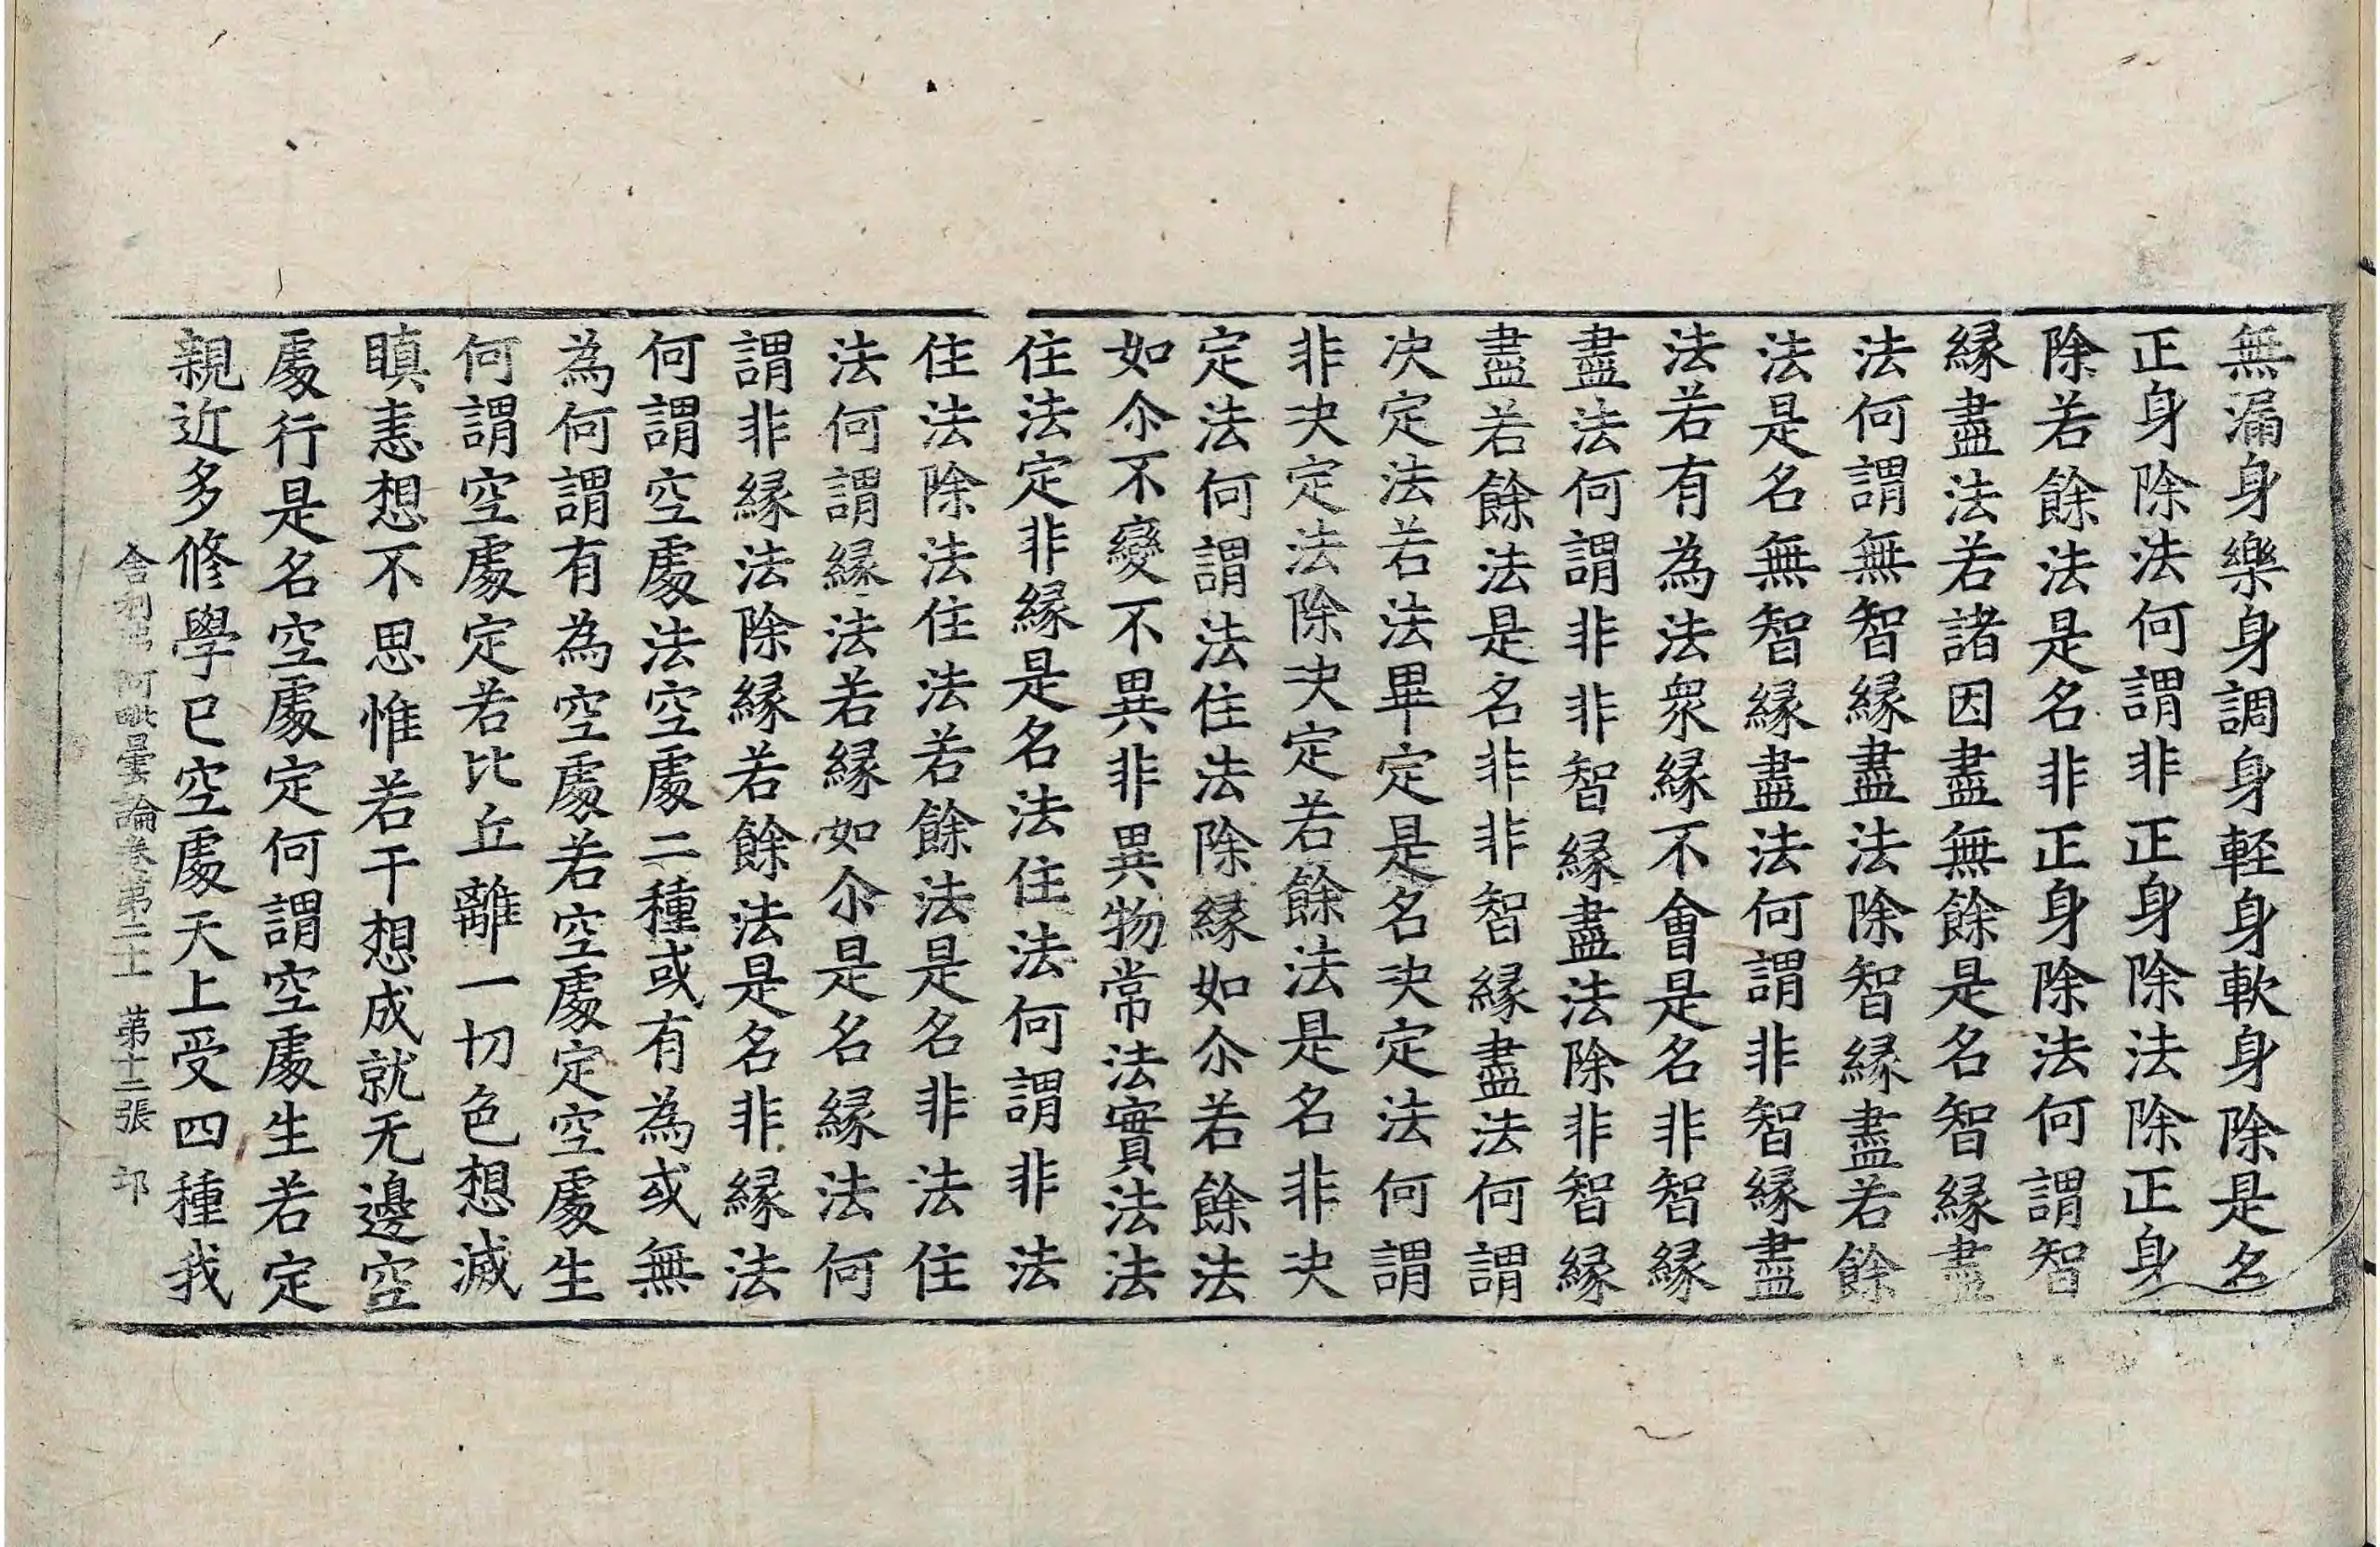 無漏身樂身調身輕身軟身除是名
正身除法何謂非正身除法除正身
除若餘法是名非正身除法何謂智
縁盡法若諸因盡無餘是名智縁盡
法何謂無智縁盡法除智縁盡若餘
法是名無智縁盡法何謂非智縁盡
法若有為法衆縁不會是名非智縁
盡法何謂非非智縁盡法除非智縁
盡若餘法是名非非智縁盡法何謂
决定法若法畢定是名决定法何謂
非决定法除决定若餘法是名非决
定法何謂法住法除縁如尒若餘法
如尒不變不異非異物常法實法法
住法定非縁是名法住法何謂非法
住法除法住法若餘法是名非法住
法何謂縁法若縁如尒是名縁法何
謂非縁法除縁若餘法是名非縁法
何謂空處法空處二種或有為或無
為何謂有為空處若空處定空處生
何謂空處定若比丘離一切色想滅
瞋恚想不思惟若干想成就无邊空
處行是名空處定何謂空處生若定
親近多修學已空處天上受四種我
舍利弗阿毗曇論卷第二十 第十二張 邙